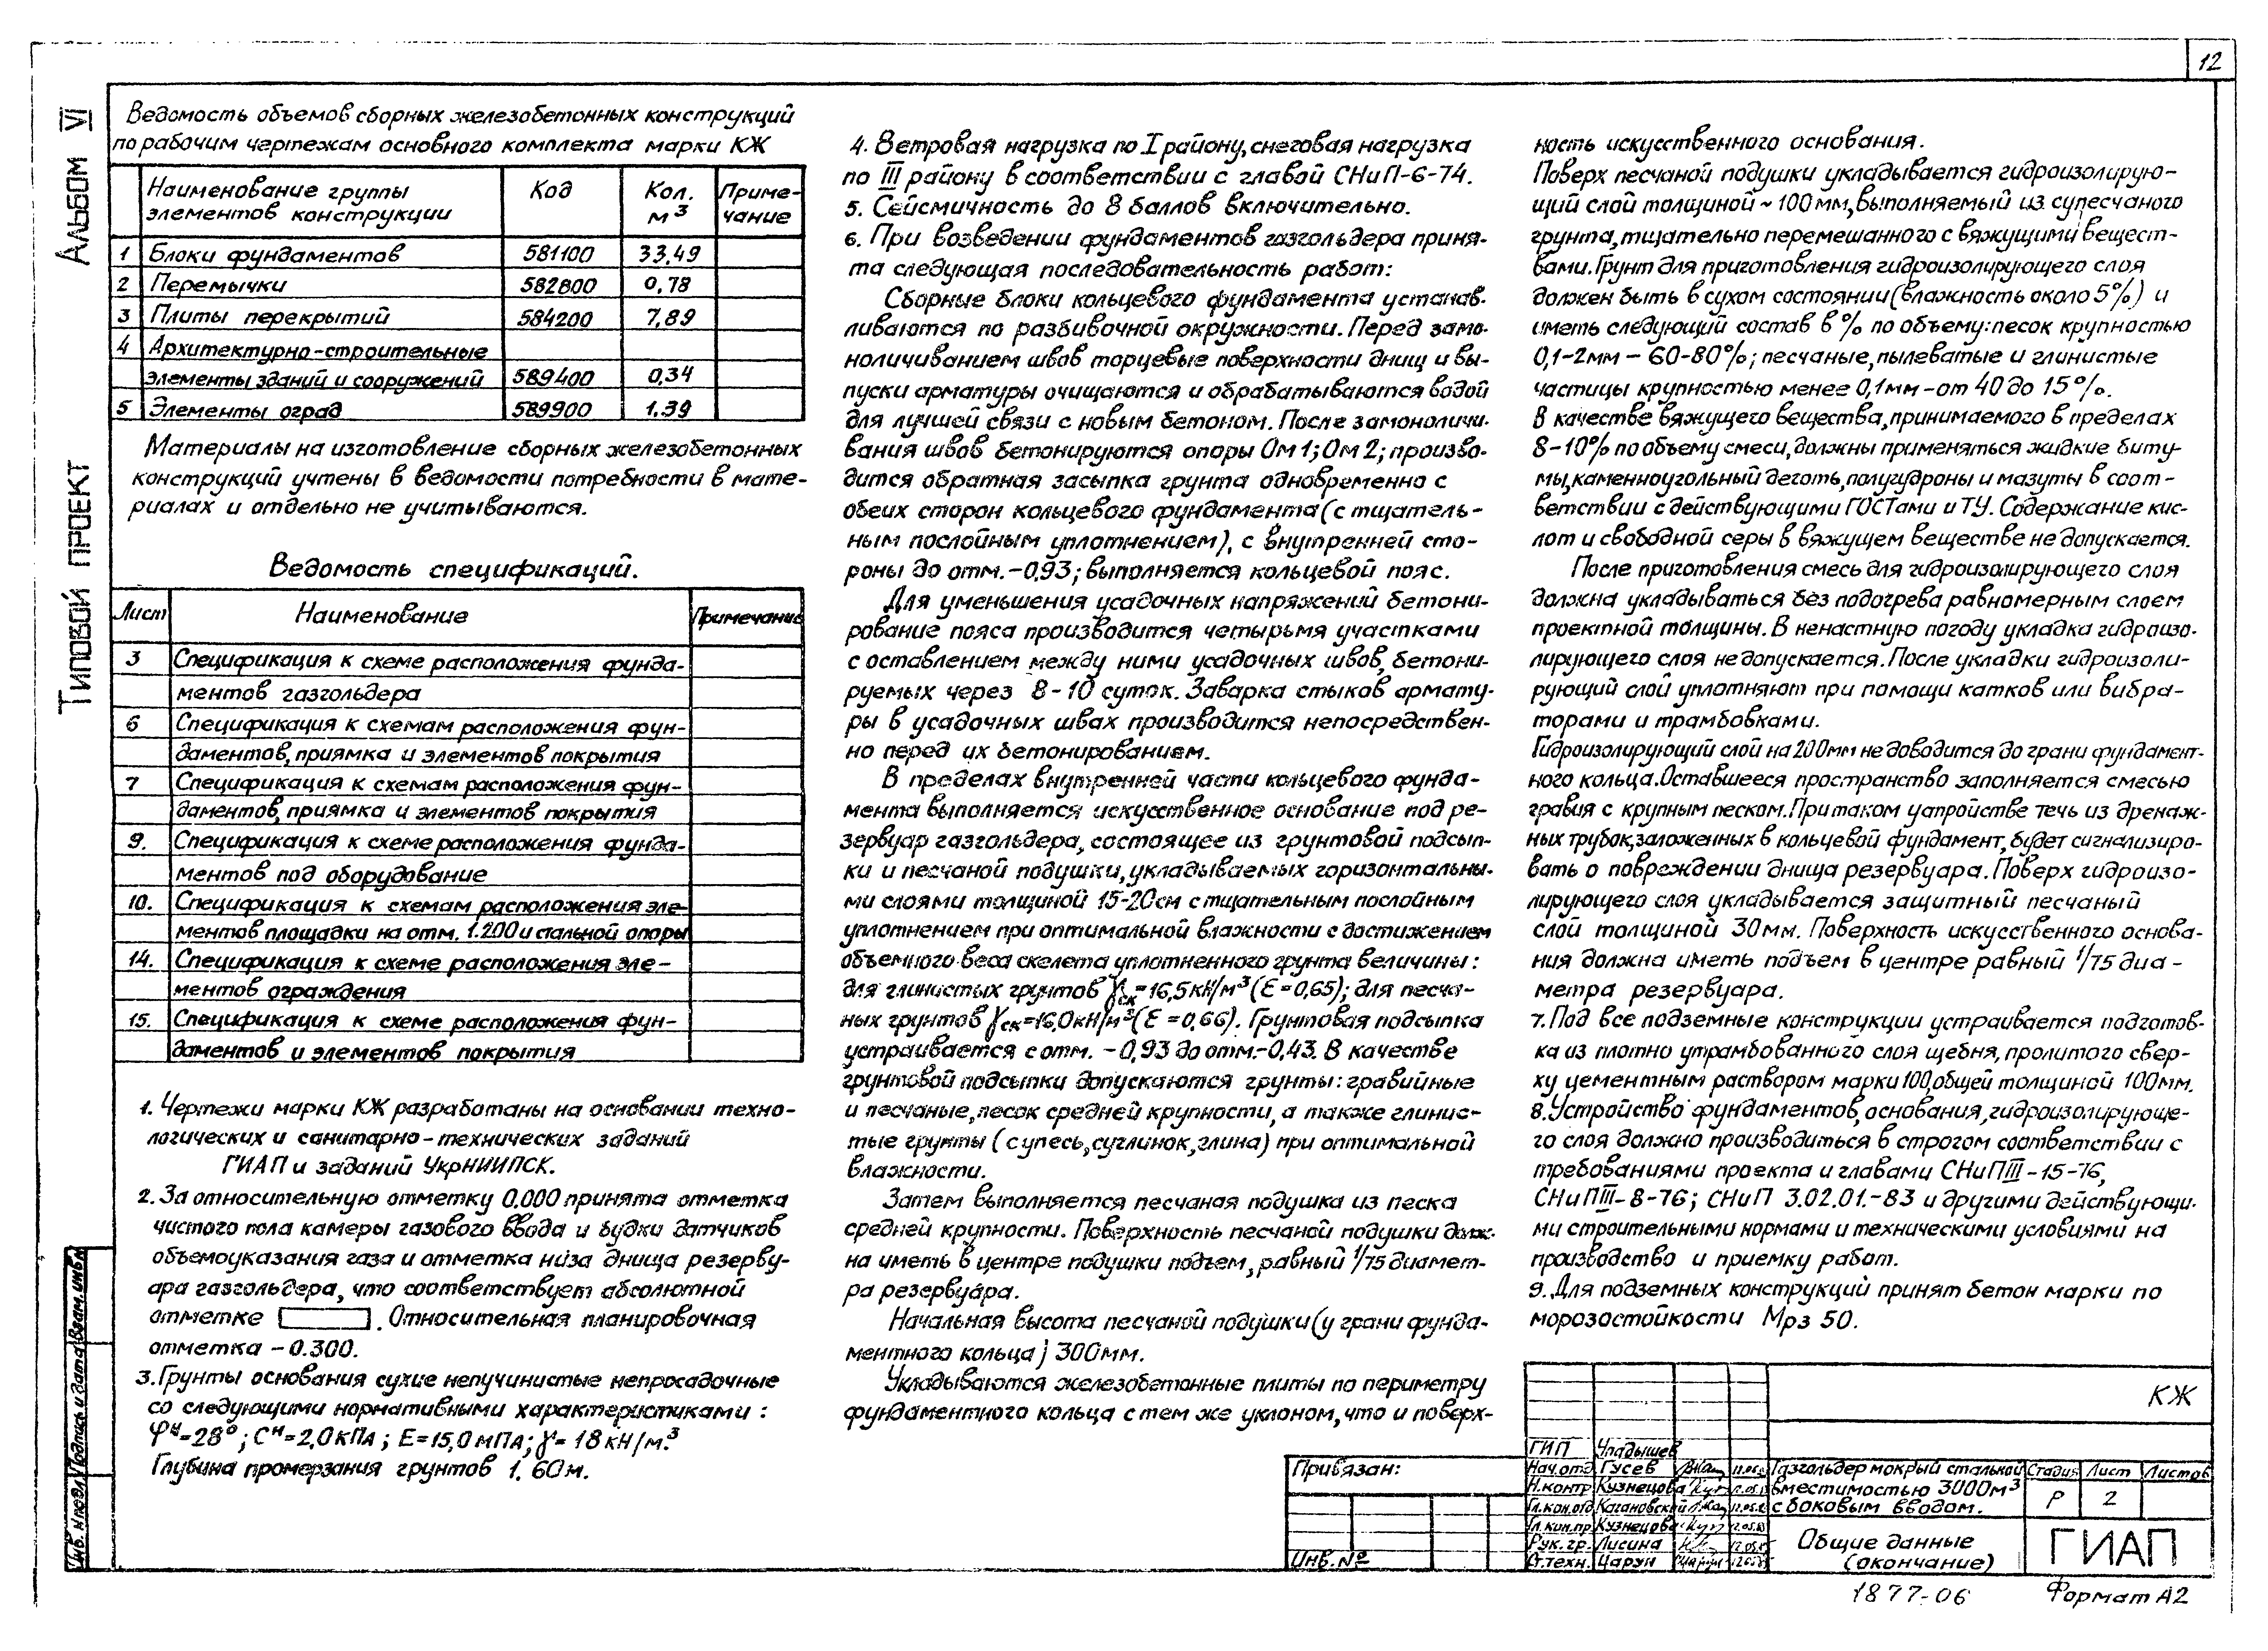 12
Альбом VI
Типовой проект
Ведомость объемов сборных железобетонных конструкций
по рабочим чертежам основного комплекта марки КЖ
Наименование группы элементов конструкции | Код | Кол. м³ | Примечание
1 Блоки фундаментов 581100 33,49
2 Перемычки 582800 0,78
3 Плиты перекрытий 584200 7,89
4 Архитектурно-строительные
элементы зданий и сооружений 589400 0,34
5 Элементы оград 589900 1.39
Материалы на изготовление сборных железобетонных
конструкций учтены в ведомости потребности в мате-
риалах и отдельно не учитываются.
Ведомость спецификаций.
Лист Наименование Примечание
3 Спецификация к схеме расположения фунда-
ментов газгольдера
6 Спецификация к схемам расположения фун-
даментов, приямка и элементов покрытия
7 Спецификация к схемам расположения фун-
даментов, приямка и элементов покрытия
9. Спецификация к схеме расположения фунда-
ментов под оборудование
10. Спецификация к схемам расположения эле-
ментов площадки на отм. 1.200 и стальной опоры
14. Спецификация к схеме расположения эле-
ментов ограждения
15. Спецификация к схеме расположения фун-
даментов и элементов покрытия
1. Чертежи марки КЖ разработаны на основании техно-
логических и санитарно-технических заданий
ГИАП и заданий УкрНИИПСК.
2. За относительную отметку 0.000 принята отметка
чистого пола камеры газового ввода и будки датчиков
объемоуказания газа и отметка низа днища резерву-
ара газгольдера, что соответствует абсолютной
отметке . Относительная планировочная
отметка -0.300.
3. Грунты основания сухие непучинистые непросадочные
со следующими нормативными характеристиками:
φᴴ=28°; Cᴴ=2,0 кПа; E=15,0 мПа; γ= 18 кН/м.³
Глубина промерзания грунтов 1.60м.
4. Ветровая нагрузка по I району, снеговая нагрузка
по III району в соответствии с главой СНиП-6-74.
5. Сейсмичность до 8 баллов включительно.
6. При возведении фундаментов газгольдера приня-
та следующая последовательность работ:
Сборные блоки кольцевого фундамента устанав-
ливаются по разбивочной окружности. Перед замо-
ноличиванием швов торцевые поверхности днищ и вы-
пуски арматуры очищаются и обрабатываются водой
для лучшей связи с новым бетоном. После замоноличи-
вания швов бетонируются опоры Ом1; Ом2; произво-
дится обратная засыпка грунта одновременно с
обеих сторон кольцевого фундамента (с тщатель-
ным послойным уплотнением), с внутренней сто-
роны до отм.-0,93; выполняется кольцевой пояс.
Для уменьшения усадочных напряжений бетони-
рование пояса производится четырьмя участками
с оставлением между ними усадочных швов, бетони-
руемых через 8-10 суток. Заварка стыков армату-
ры в усадочных швах производится непосредствен-
но перед их бетонированием.
В пределах внутренней части кольцевого фунда-
мента выполняется искусственное основание под ре-
зервуар газгольдера, состоящее из грунтовой подсып-
ки и песчаной подушки, укладываемых горизонтальны-
ми слоями толщиной 15-20см с тщательным послойным
уплотнением при оптимальной влажности с достижением
объемного веса скелета уплотненного грунта величины:
для глинистых грунтов γск=16,5 кН/м³ (Ɛ=0,65); для песча-
ных грунтов γск=16,0 кН/м³ (Ɛ=0,66). Грунтовая подсыпка
устраивается с отм. -0,93 до отм.-0,43. В качестве
грунтовой подсыпки допускаются грунты: гравийные
и песчаные, песок средней крупности, а также глинис-
тые грунты (супесь, суглинок, глина) при оптимальной
влажности.
Затем выполняется песчаная подушка из песка
средней крупности. Поверхность песчаной подушки долж-
на иметь в центре подушки подъем, равный 1/75 диамет-
ра резервуара.
Начальная высота песчаной подушки (у грани фунда-
ментного кольца) 300мм.
Укладываются железобетонные плиты по периметру
фундаментного кольца с тем же уклоном, что и поверх-
ность искусственного основания.
Поверх песчаной подушки укладывается гидроизолирую-
щий слой толщиной ~100 мм, выполняемый из супесчаного
грунта, тщательно перемешанного с вяжущими вещест-
вами. Грунт для приготовления гидроизолирующего слоя
должен быть в сухом состоянии (влажность около 5%) и
иметь следующий состав в % по объему: песок крупностью
0,1-2мм - 60-80%; песчаные, пылеватые и глинистые
частицы крупностью менее 0,1мм-от 40 до 15%.
В качестве вяжущего вещества, принимаемого в пределах
8-10% по объему смеси, должны применяться жидкие биту-
мы, каменноугольный деготь, полугудроны и мазуты в соот-
ветствии с действующими ГОСТами и ТУ. Содержание кис-
лот и свободной серы в вяжущем веществе не допускается.
После приготовления смесь для гидроизолирующего слоя
должна укладываться без подогрева равномерным слоем
проектной толщины. В ненастную погоду укладка гидроизо-
лирующего слоя не допускается. После укладки гидроизоли-
рующий слой уплотняют при помощи катков или вибра-
торами и трамбовками.
Гидроизолирующий слой на 200мм не доводится до грани фундамент-
ного кольца. Оставшееся пространство заполняется смесью
гравия с крупным песком. При таком уапройстве течь из дренаж-
ных трубок, заложенных в кольцевой фундамент, будет сигнализиро-
вать о повреждении днища резервуара. Поверх гидроизо-
лирующего слоя укладывается защитный песчаный
слой толщиной 30 мм. Поверхность искусственного основа-
ния должна иметь подъем в центре равный 1/75 диа-
метра резервуара.
7. Под все подземные конструкции устраивается подготов-
ка из плотно утрамбованного слоя щебня, пролитого свер-
ху цементным раствором марки 100, общей толщиной 100мм.
8. Устройство фундаментов, основания, гидроизолирующе-
го слоя должно производиться в строгом соответствии с
требованиями проекта и главами СНиП III-15-76,
СНиП III-8-76; СНиП 3.02.01.-83 и другими действующи-
ми строительными нормами и техническими условиями на
производство и приемку работ.
9. Для подземных конструкций принят бетон марки по
морозостойкости Мрз 50.
Взам. инв. №
Подпись и дата
Инв. № подл.
Привязан:
Инв. №
КЖ
ГИП Чладышев
Нач. отд Гусев
Н. контр Кузнецова
Гл. кон. отд Кагановский
Гл. кон. пр. Кузнецова
Рук. гр. Лисина
Ст. техн. Царун
Газгольдер мокрый стальной
вместимостью 3000м³
с боковым вводом.
Стадия Лист Листов
Р 2
Общие данные
(окончание)
ГИАП
1877-06
Формат А2